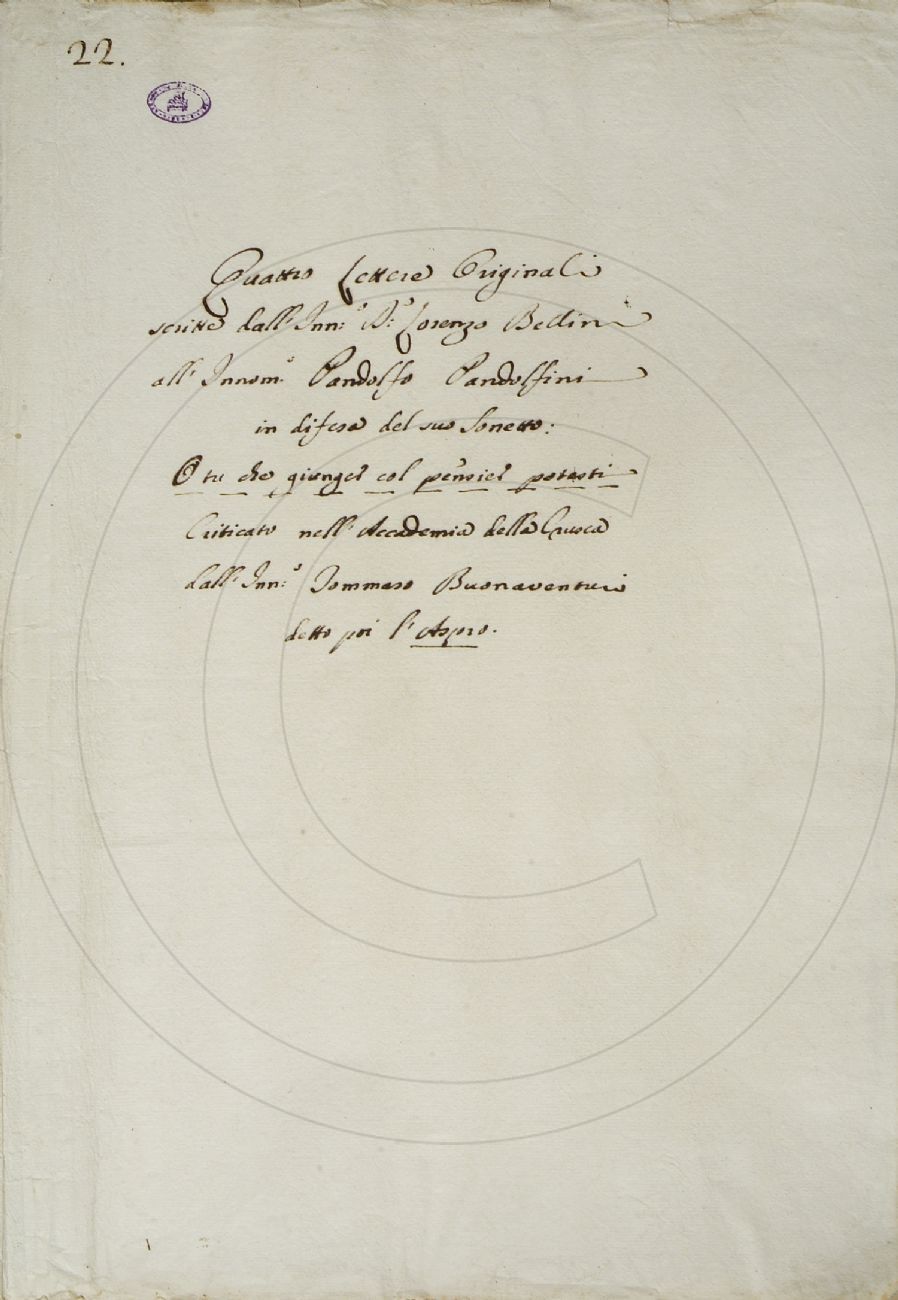 22.
Quattro Lettere Originali
scritte dall' Inn:º D:º Lorenzo Bellini
all' Innom.º Pandolfo Pandolfini
in difesa del suo Sonetto:
O tu che giunger col pensier potesti
Criticato nell' Accademia della Crusca
dall' Inn:º Tommaso Buonaventuri
detto poi l' Aspro.